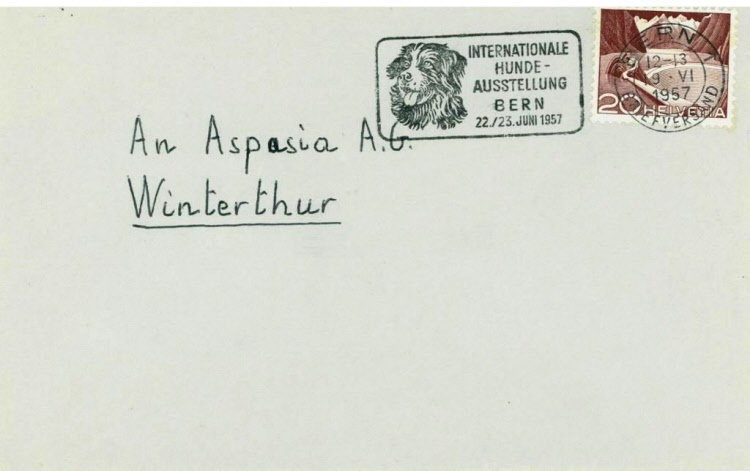 INTERNATIONALE
HUNDE-
AUSSTELLUNG
BERN
22./23. JUNI 1957
BERN 1
12-13
9. VI
1957
BRIEFVERSAND
20 HELVETIA
An Aspasia A.G.
Winterthur